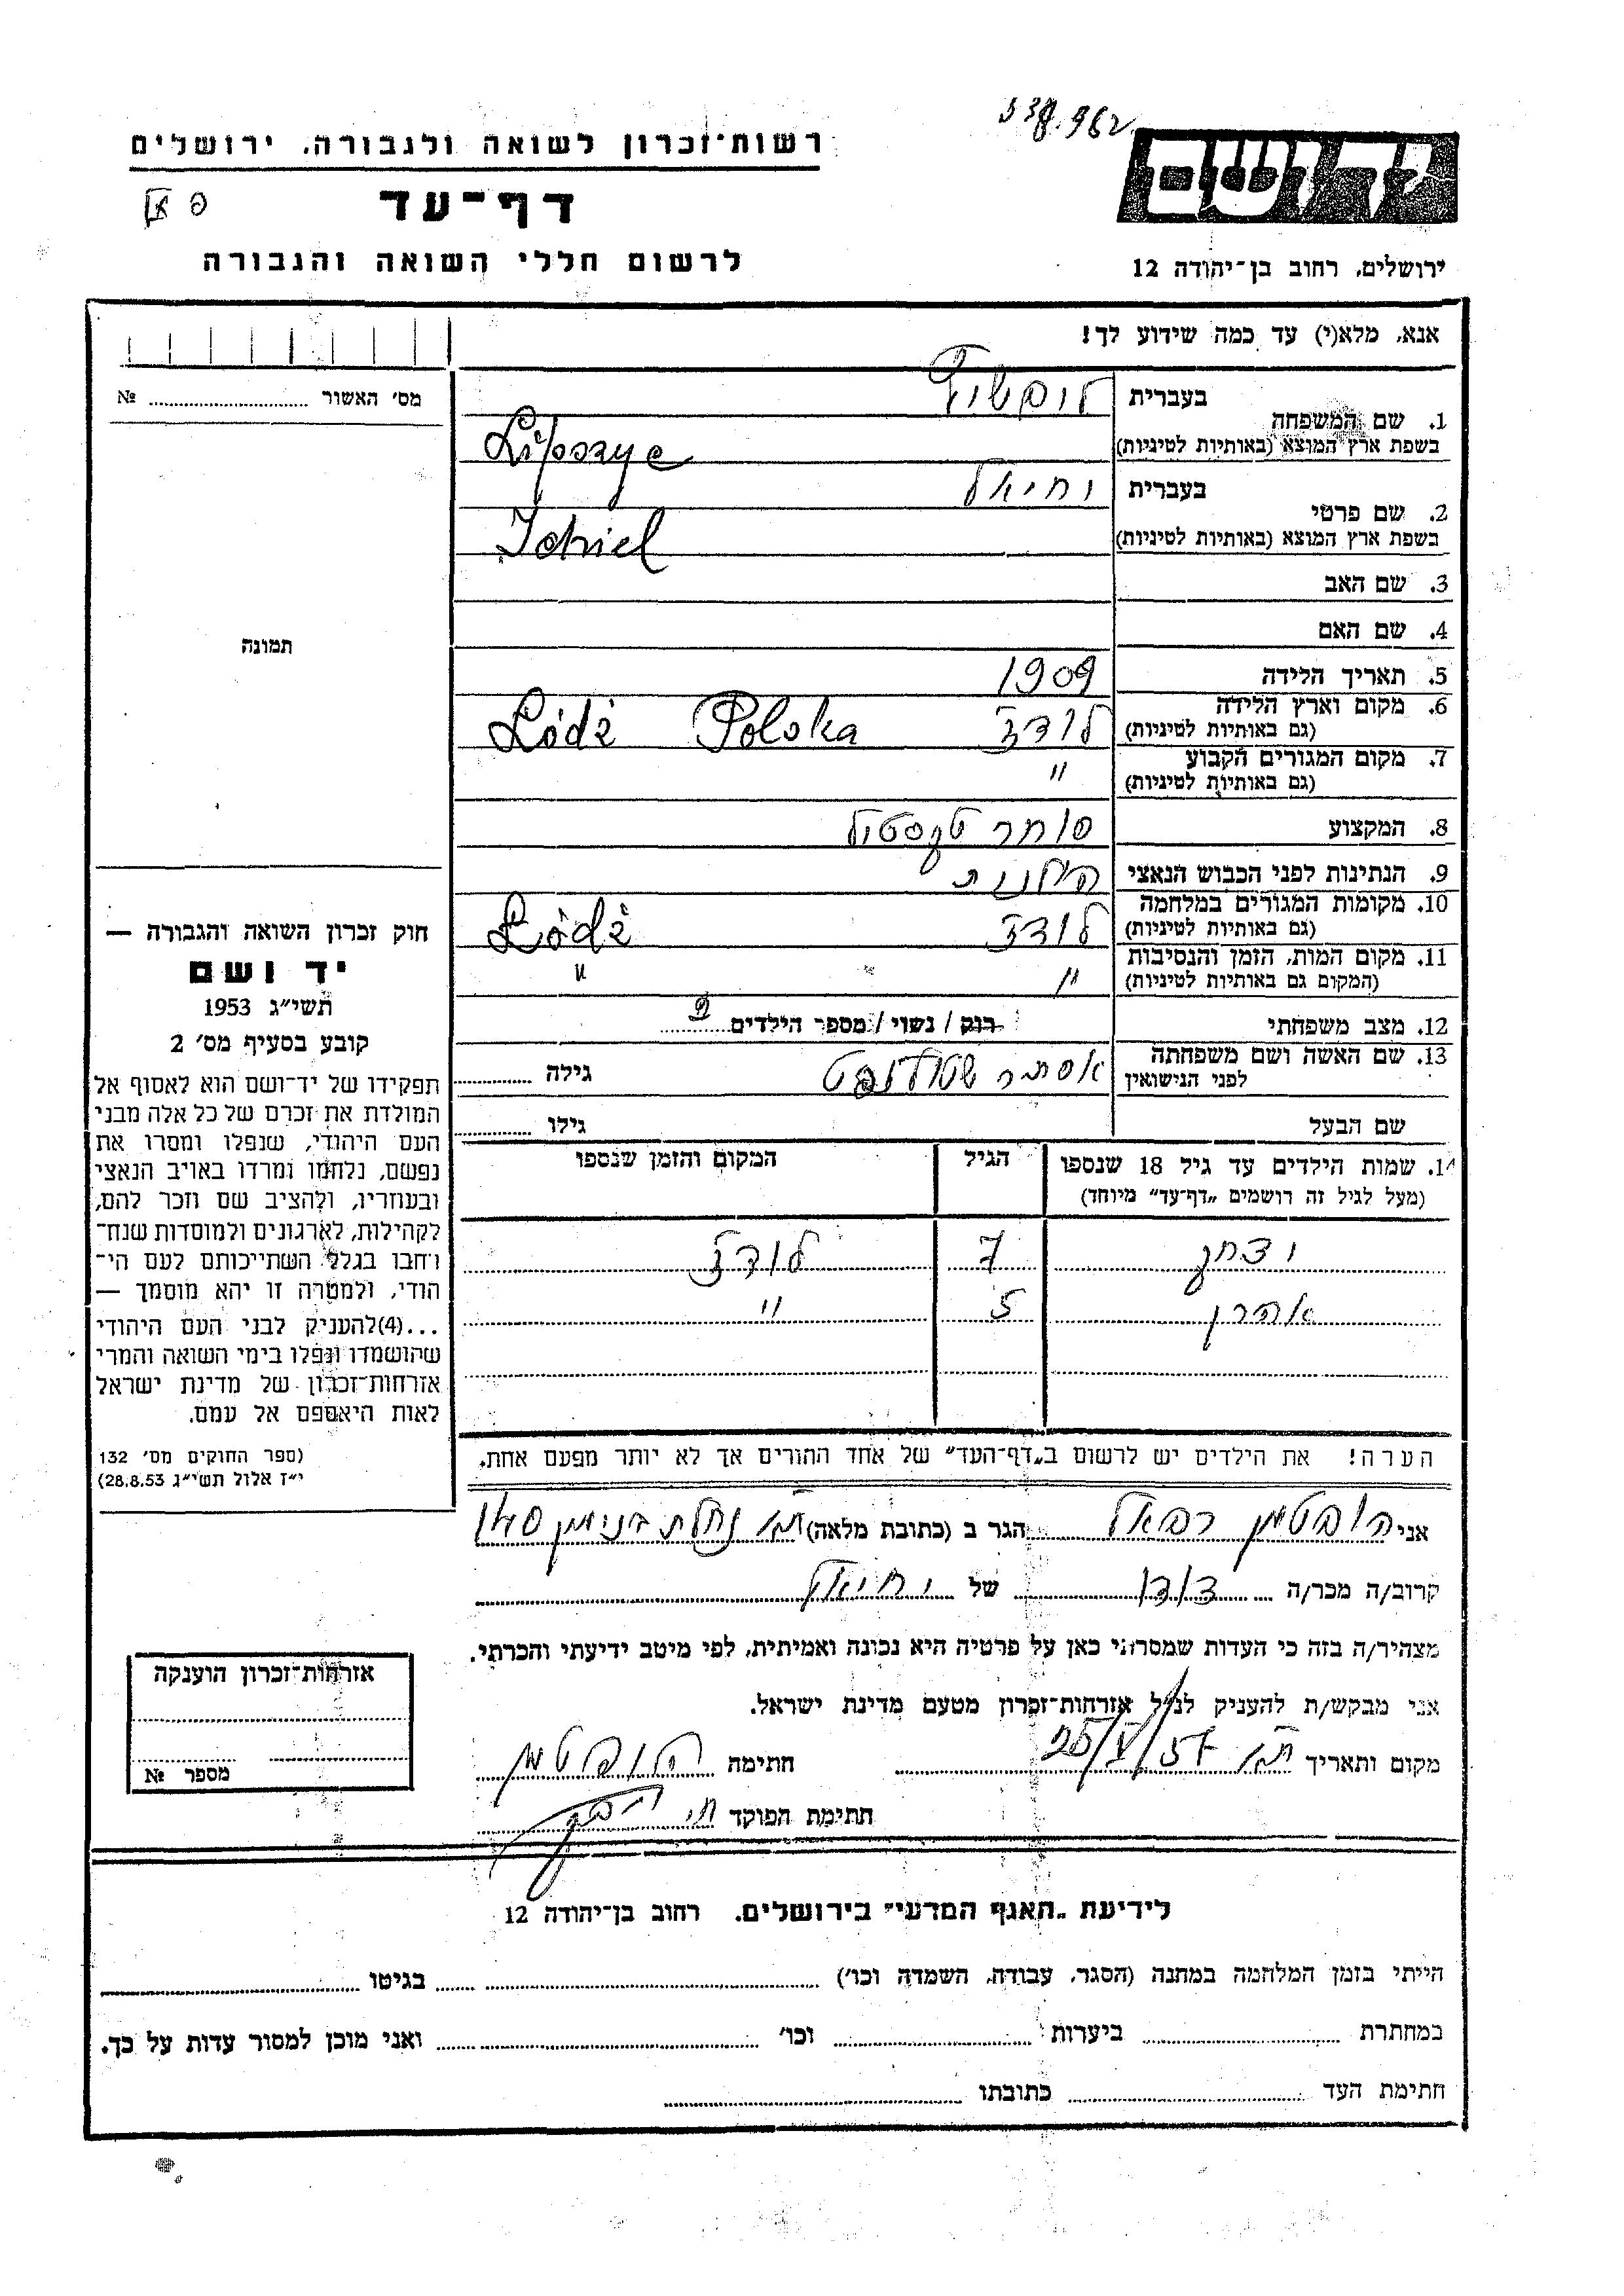 538962
רשות־זכרון לשואה ולגבורה, ירושלים
יד ושם
דף־עד
לרשום חללי השואה והגבורה
ירושלים, רחוב בן־יהודה 12
אנא, מלא(י) עד כמה שידוע לך!
מס׳ האשור ........ №
תמונה
1. שם המשפחה בעברית ליפשיץ
בשפת ארץ המוצא (באותיות לטיניות) Lipszyc
2. שם פרטי בעברית יחיאל
בשפת ארץ המוצא (באותיות לטיניות) Ichiel
3. שם האב
4. שם האם
5. תאריך הלידה 1909
6. מקום וארץ הלידה (גם באותיות לטיניות) לודז Polska Łódź
7. מקום המגורים הקבוע (גם באותיות לטיניות) "
8. המקצוע סוחר טקסטיל
9. הנתינות לפני הכבוש הנאצי פולנית
10. מקומות המגורים במלחמה (גם באותיות לטיניות) לודז Łódź
11. מקום המות, הזמן והנסיבות (המקום גם באותיות לטיניות) " "
12. מצב משפחתי רווק / נשוי / מספר הילדים 2
13. שם האשה ושם משפחתה לפני הנישואין אסתר גילה
שם הבעל גילו
14. שמות הילדים עד גיל 18 שנספו (מעל לגיל זה רושמים „דף־עד” מיוחד) הגיל המקום והזמן שנספו
יצחק 7 לודז
אהרן 5 "
הערה! את הילדים יש לרשום ב„דף־העד” של אחד ההורים אך לא יותר מפעם אחת.
חוק זכרון השואה והגבורה —
יד ושם
תשי״ג 1953
קובע בסעיף מס׳ 2
תפקידו של יד־ושם הוא לאסוף אל
המולדת את זכרם של כל אלה מבני
העם היהודי, שנפלו ומסרו את
נפשם, נלחמו ומרדו באויב הנאצי
ובעוזריו, ולהציב שם וזכר להם,
לקהילות, לארגונים ולמוסדות שנח־
רבו בגלל השתייכותם לעם הי־
הודי, ולמטרה זו יהא מוסמך —
...(4)להעניק לבני העם היהודי
שהושמדו ונפלו בימי השואה והמרי
אזרחות־זכרון של מדינת ישראל
לאות היאספם אל עמם.
(ספר החוקים מס׳ 132
י״ז אלול תשי״ג 28.8.53)
אני הופטמן רפאל הגר ב (כתובת מלאה) ת״א נחלת בנימין
קרוב/ה מכר/ה דודו של יחיאל
מצהיר/ה בזה כי העדות שמסרתי כאן על פרטיה היא נכונה ואמיתית, לפי מיטב ידיעתי והכרתי.
אני מבקש/ת להעניק לנ״ל אזרחות־זכרון מטעם מדינת ישראל.
מקום ותאריך ת״א חתימה הופטמן
חתימת הפוקד
אזרחות־זכרון הוענקה
מספר №
לידיעת „האגף המדעי” בירושלים, רחוב בן־יהודה 12
הייתי בזמן המלחמה במחנה (הסגר, עבודה, השמדה וכו׳) ........ בגיטו ........
במחתרת ........ ביערות ........ וכו׳ ........ ואני מוכן למסור עדות על כך.
חתימת העד ........ כתובתו ........